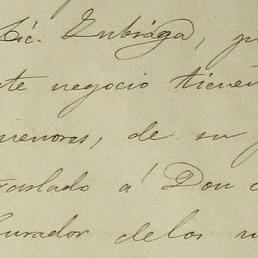 Lic. Zubiaga, p
te negocio tienen
menores, de su
raslado a' Don
curador delos m